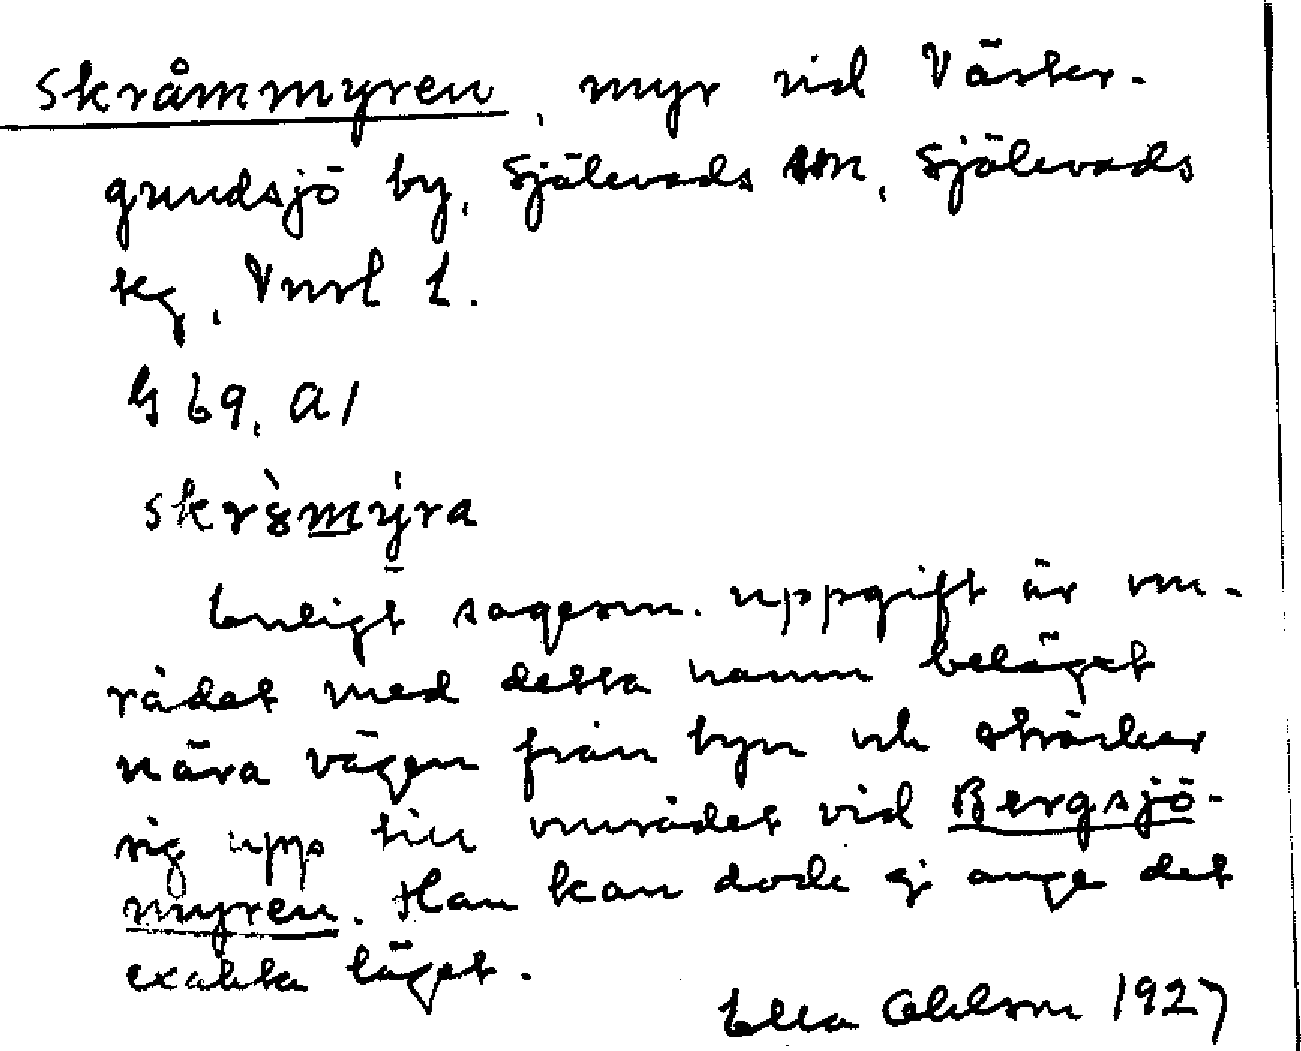 Skråmmyren, myr vid Väster-
grundsjö by, Själevads sn, Själevads
tg, Vnrl l.
G 69, A1
skr8̀mýra
Enligt sagesm. uppgift är om-
rådet med detta namn beläget
nära vägen från byn och sträcker
sig upp till området vid Bergsjö-
myren. Han kan dock ej ange det
exakta läget.
Ella Ohlson 1927